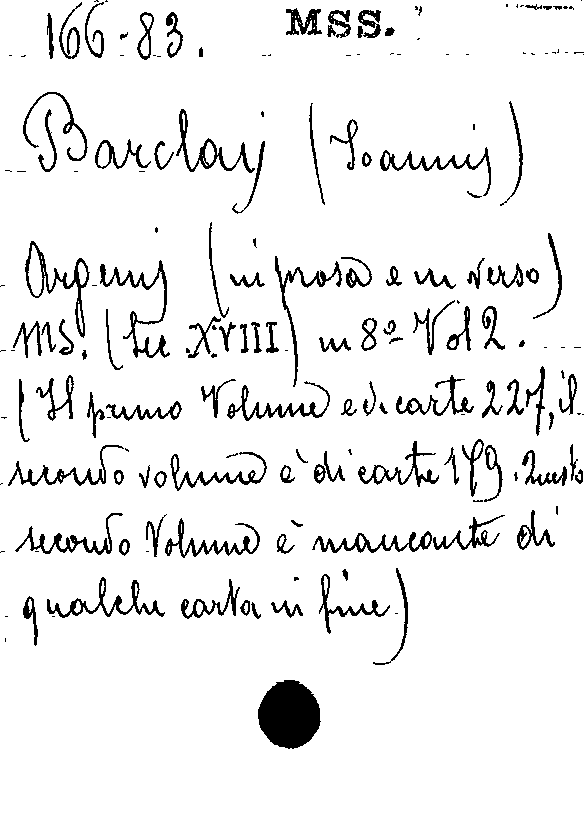 166-83. MSS.
Barclaij (Ioannis)
Argenis (in prosa e in verso)
MS. (Sec XVIII) in 8º Vol 2.
(Il primo Volume e di carte 227, il
secondo volume è di carte 179. Questo
secondo Volume è mancante di
qualche carta in fine)